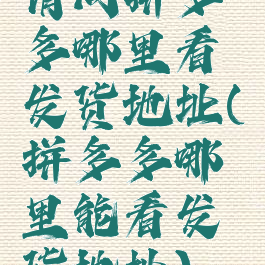 请问拼多
多哪里看
发货地址(
拼多多哪
里能看发
货地址)